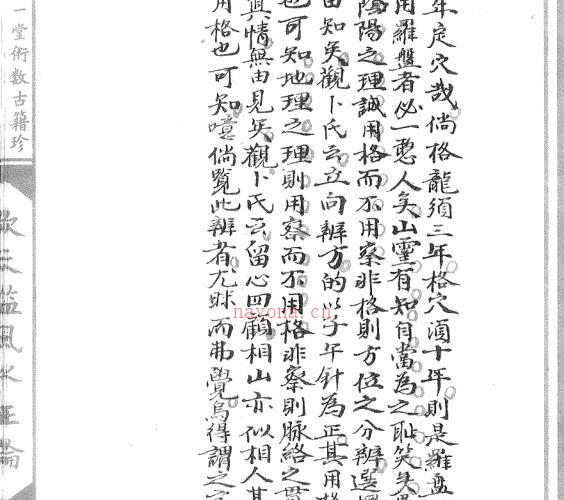 年定穴哉倘格龍須三年格穴須十年則是羅盤
用羅盤者必一憨人矣山靈有知自當為之恥笑矣
陰陽之理誠用格而不用察非格則方位之分辨選
由知矣觀卜氏云立向辨方的以子午針為正其用格
也可知地理之理則用察而不用格非察則脈絡之
真情無由見矣觀卜氏云留心四顧相山亦似相人其
用格也可知噫倘覽此辨者尤昧而弗覺烏得謂之
一堂術數古籍珍
欽天監風水正論
nayona.cn